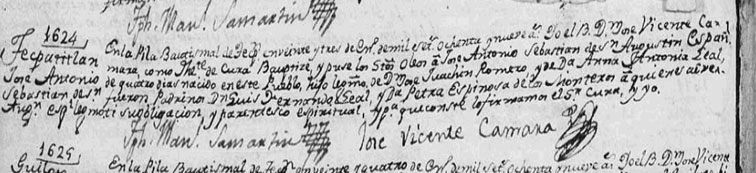 Jph. Man.l Samartin
1624
Tecpatitlan
Jose Antonio
Sebastian de Sn
Aug.n esp.l legmo
En la Pila Baptismal de Tecp.n en veinte y tres de En.o de mil Set.s ochenta y nueve a.s Yo el B. D. Jose Vicente Ca-
mara, como The.te de Cura, Baptize, y puse los Stos Oleos a Jose Antonio Sebastian de Sn Augustin Españ.l
de quatro dias nacido en este Pueblo, hijo legmo. de D.n Jose Juachin Romero, y de Da Anna Antonia Leal,
fueron Padrinos D.n Luis Fernando Leal, y Da Petra Espinosa de los Monteros a quienes adver-
ti su obligacion, y parentesco espiritual, y pa que conste lo firmamos el Sr Cura, y yo.
Jph. Man.l Samartin
Jose Vicente Camara
1625
En la Pila Baptismal de Tecp.n en veinte y quatro de En.o de mil Set.s ochenta y nueve a.s Yo el B. D. Jose Vicente